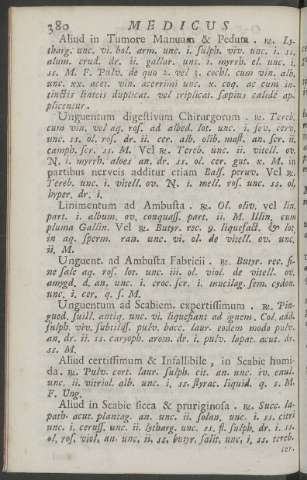 380 MEDICUS
Aliud in Tumore Manuum & Pedum. ℞. Ly-
tharg. unc. vi. bol. arm. unc. i. sulph. viv. unc. i. ss.
alum. crud. dr. ii. gallar. unc. i. myrrh. el. unc. i.
ss. M. F. Pulv. de quo 2. vel 3. cochl. cum vin. alb.
unc. xx. acet. vin. acerrimi unc. x. coq. ac cum in-
tinctis linteis duplicat. vel triplicat. sæpius calidè ap-
plicentur.
Unguentum digestivum Chirurgorum. ℞. Tereb.
cum vin. vel aq. ros. ad albed. lot. unc. i. sev. cerv.
unc. ss. ol. ros. dr. ii. cer. alb. olib. mast. an. scr. ii.
camph. scr. ss. M. Vel ℞. Tereb. unc. ii. vitell. ov.
N. i. myrrh. aloes an. dr. ss. ol. cer. gut. x. M. in
partibus nerveis additur etiam Bals. peruv. Vel ℞.
Tereb. unc. i. vitell. ov. N. i. mell. ros. unc. ss. ol.
hyper. dr. i.
Linimentum ad Ambusta. ℞. Ol. oliv. vel lin.
part. i. album. ov. conquass. part. ii. M. Illin. cum
pluma Gallin. Vel ℞. Butyr. rec. q. liquefact. & lot.
in aq. sperm. ran. unc. vi. ol. de vitell. ov. unc.
ii. M.
Unguent. ad Ambusta Fabricii. ℞. Butyr. rec. si-
ne sale aq. ros. lot. unc. iii. ol. viol. de vitell. ov.
amygd. d. an. unc. i. croc. scr. i. mucilag. sem. cydon.
unc. i. cer. q. s. M.
Unguentum ad Scabiem expertissimum. ℞. Pin-
gued. suill. antiq. unc. vi. liquefians ad ignem. Col. add.
sulph. viv. subtiliss. pulv. bacc. laur. eodem modo pulv.
an. dr. ii. ss. caryoph. arom. dr. i. pulv. lapat. acut. dr.
ss. M.
Aliud certissimum & Infallibile, in Scabie humi-
da. ℞. Pulv. cort. laur. sulph. cit. an. unc. iv. enul.
unc. ii. vitriol. alb. unc. i. ss. styrac. liquid. q. s. M.
F. Ung.
Aliud in Scabie sicca & pruriginosa. ℞. Succ. la-
path. acut. plantag. an. unc. ii. solan. unc. i. ss. citri
unc. i. ceruss. unc. ii. lytharg. unc. ss. fl. sulph. dr. i. ss.
ol. ros. viol. an. unc. ii. ss. butyr. salit. unc. i. ss. tereb.